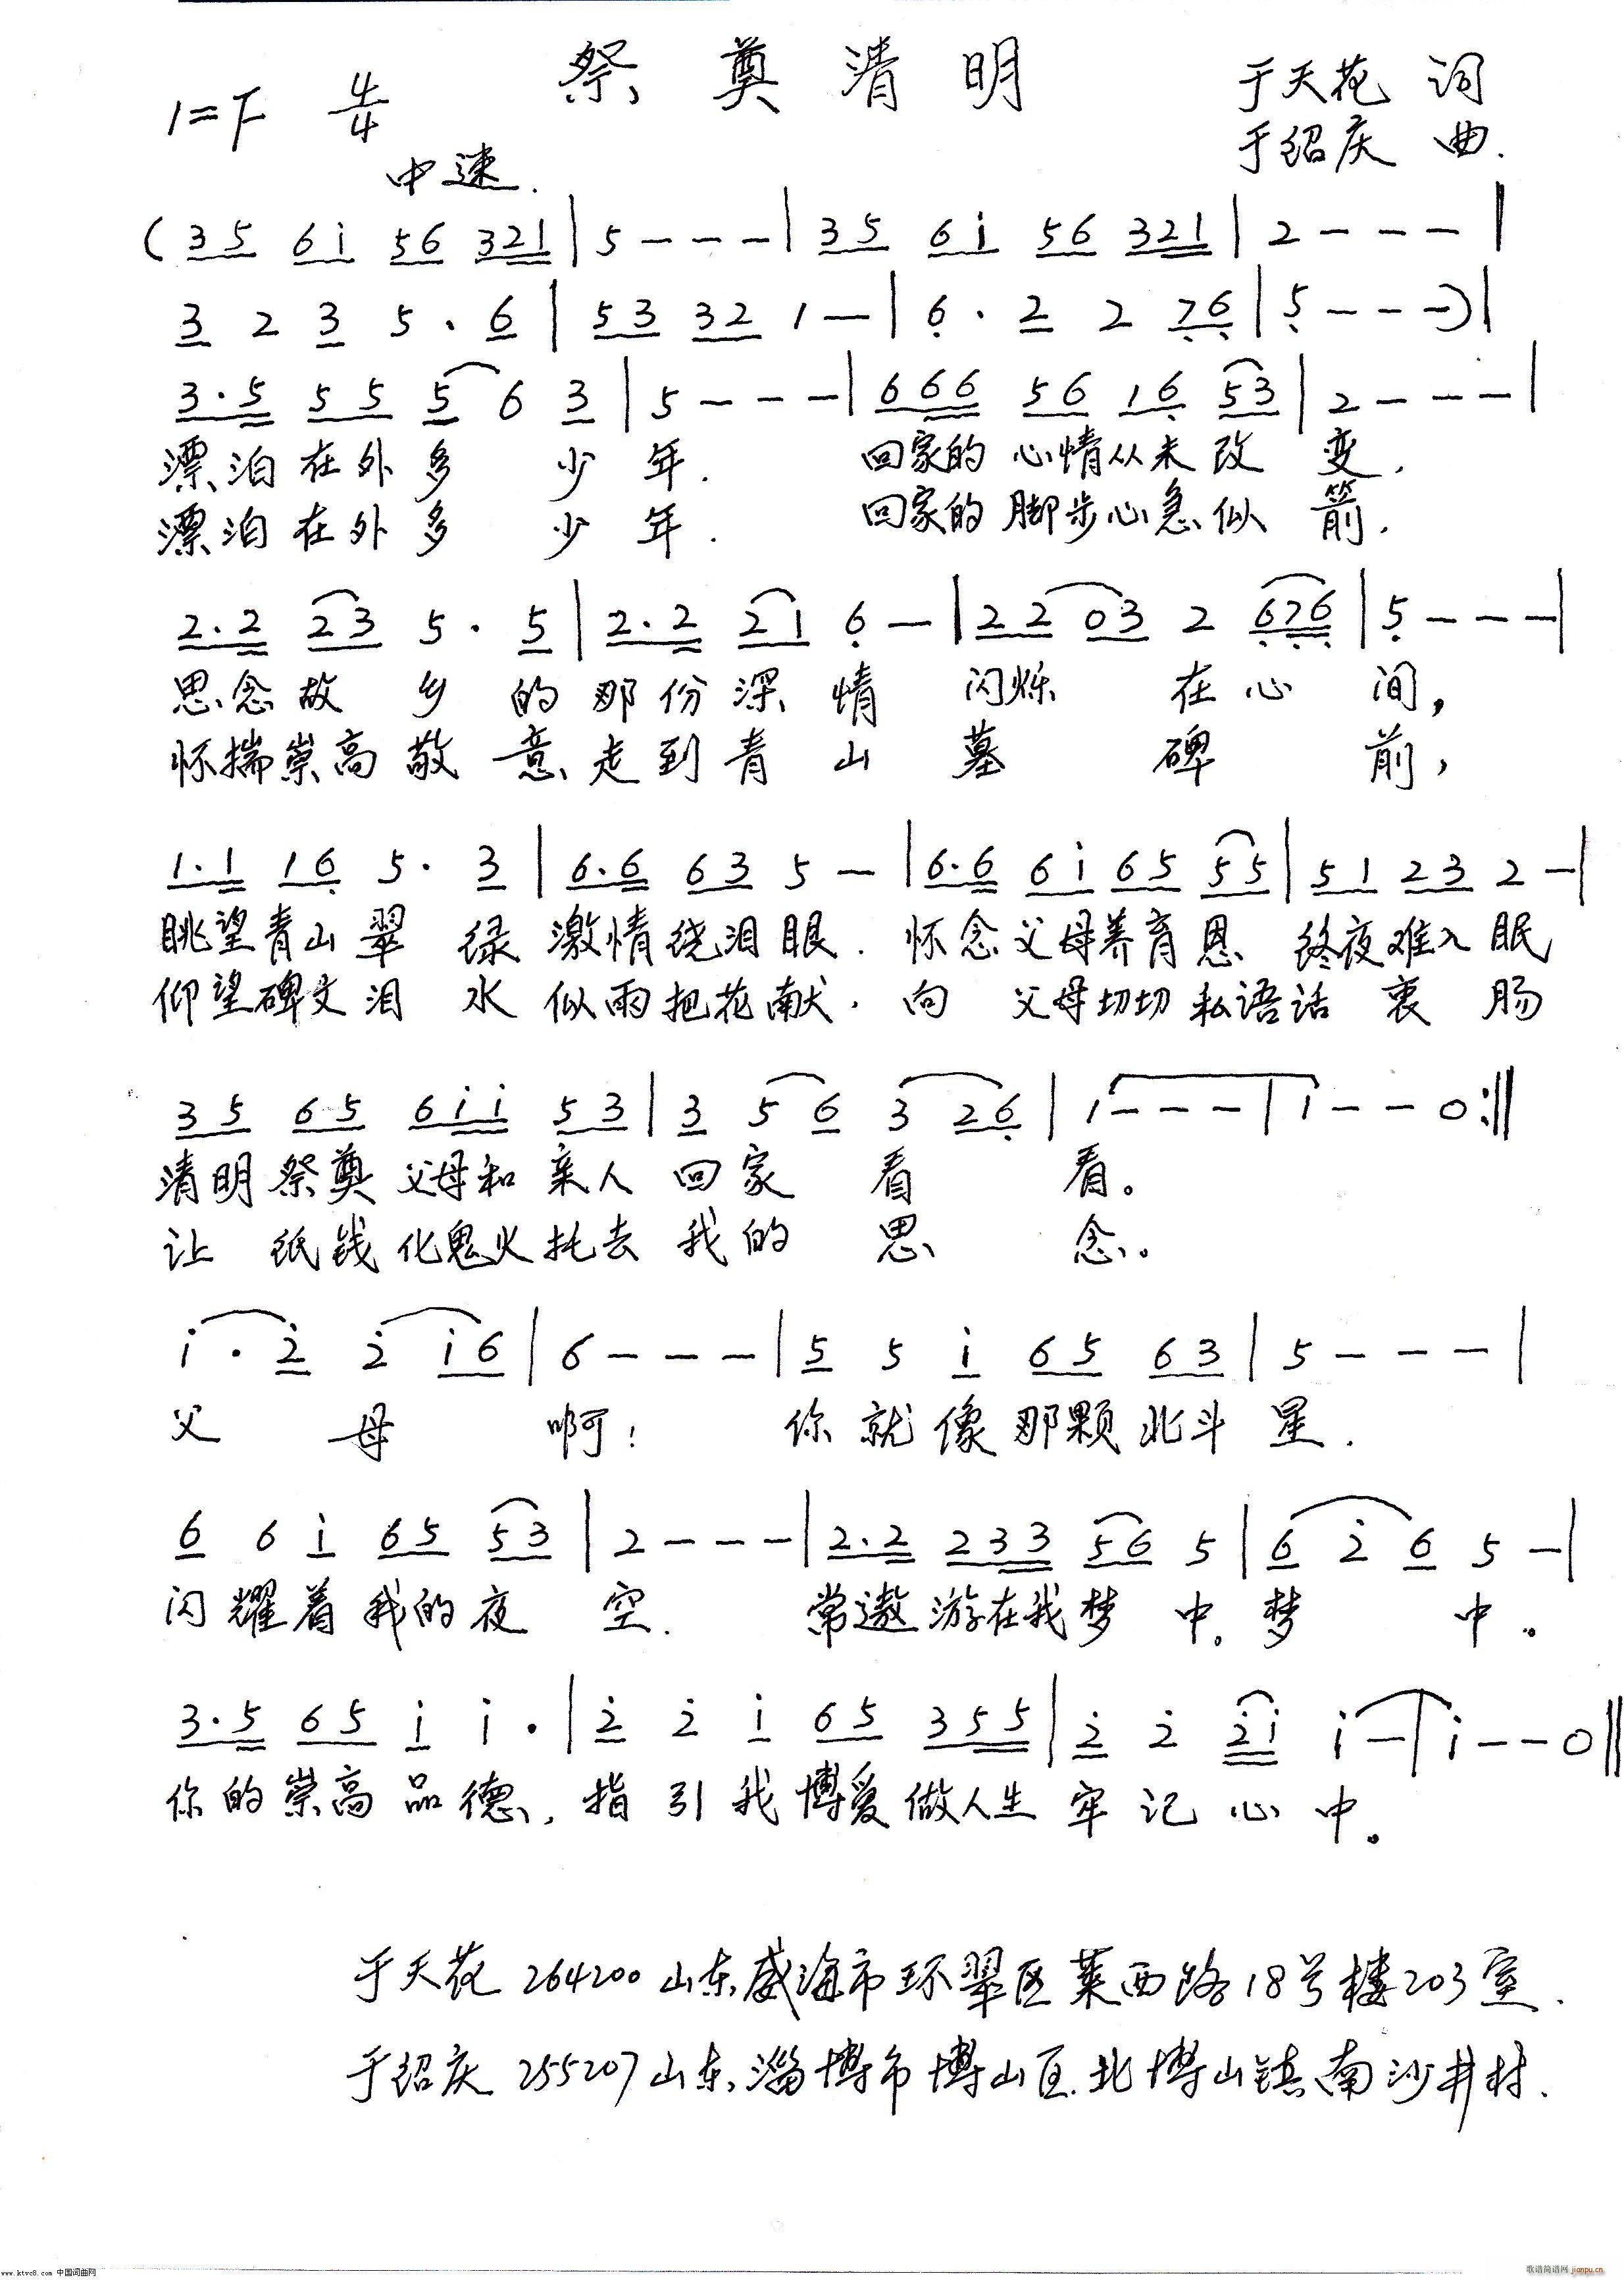 祭奠清明
1=F 4/4
于天花 词
于绍庆 曲.
中速.
(35 6i 56 321 | 5 - - - | 35 6i 56 321 | 2 - - - |
3 2 3 5 · 6 | 53 32 1 - | 6 · 2 2 76 | 5 - - -) |
3·5 55 5 6 3 | 5 - - - | 666 56 16 53 | 2 - - - |
漂泊在外多 少 年. 回家的 心情从未 改 变.
漂泊在外多 少 年. 回家的 脚步心急似 箭.
2·2 23 5 · 5 | 2·2 21 6 - | 22 03 2 676 | 5 - - - |
思念故 乡 的那份深 情 闪烁 在心 间,
怀揣崇高敬 意走到青 山 墓 碑 前,
1·1 16 5 · 3 | 6·6 63 5 - | 6·6 6i 65 55 | 51 23 2 - |
眺望青山翠 绿 激情绕泪眼. 怀念父母养育恩 终夜难入眠
仰望碑文泪 水 似雨把花献. 向 父母切切私语话 衷 肠
35 65 6ii 53 | 3 5 6 3 26 | i - - - | i - - 0 :‖
清明祭奠 父母和亲人 回家 看 看。
让 纸钱化鬼火托去 我的 思 念。
i · 2 2 i6 | 6 - - - | 5 5 i 65 63 | 5 - - - |
父 母 啊! 你就像那颗北斗 星.
6 6 i 65 53 | 2 - - - | 2·2 233 56 5 | 6 2 6 5 - |
闪耀着我的夜 空. 常遨游在我梦 中。梦 中。
3·5 65 i i · | 2 2 i 65 355 | 2 2 2i i - | i - - 0 ‖
你的崇高品德,指引我博爱做人生 牢记心中。
于天花 264200 山东威海市环翠区莱西路18号楼203室.
于绍庆 255207 山东淄博市博山区北博山镇南沙井村.
www.ktvc8.com 中国词曲网
歌谱简谱网 jianpu.cn